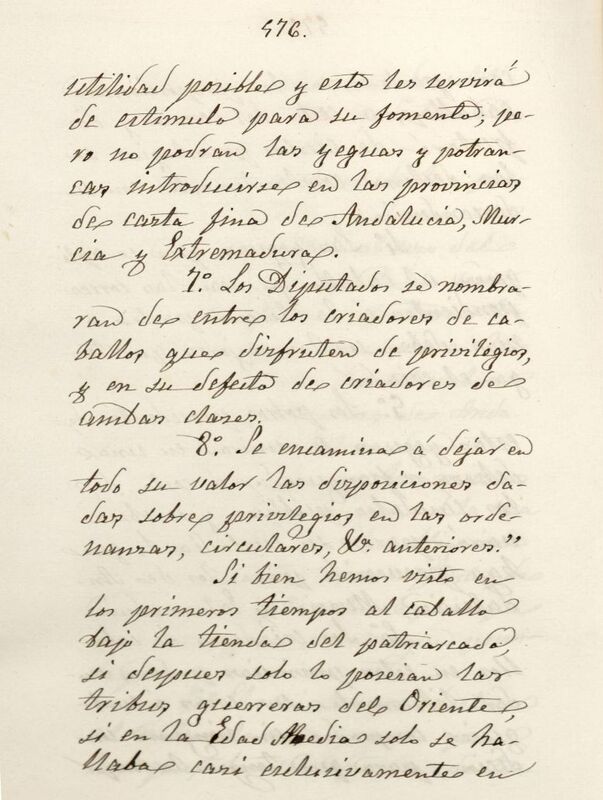 576.
utilidad posible y esto les servirá
de estímulo para su fomento; pe-
ro no podran las yeguas y potran-
cas introducirse en las provincias
de casta fina de Andalucia, Mur-
cia y Extremadura.
7º. Los Diputados se nombra-
ran de entre los criadores de ca-
ballos que disfruten de privilegios,
y en su defecto de criadores de
ambas clases.
8º. Se encamina á dejar en
todo su valor las disposiciones da-
das sobre privilegios en las orde-
nanzas, circulares, &ª. anteriores."
Si bien hemos visto en
los primeros tiempos al caballo
bajo la tienda del patriarcado,
si despues solo lo poseian las
tribus guerreras del Oriente,
si en la Edad Media solo se ha-
llaba casi exclusivamente en